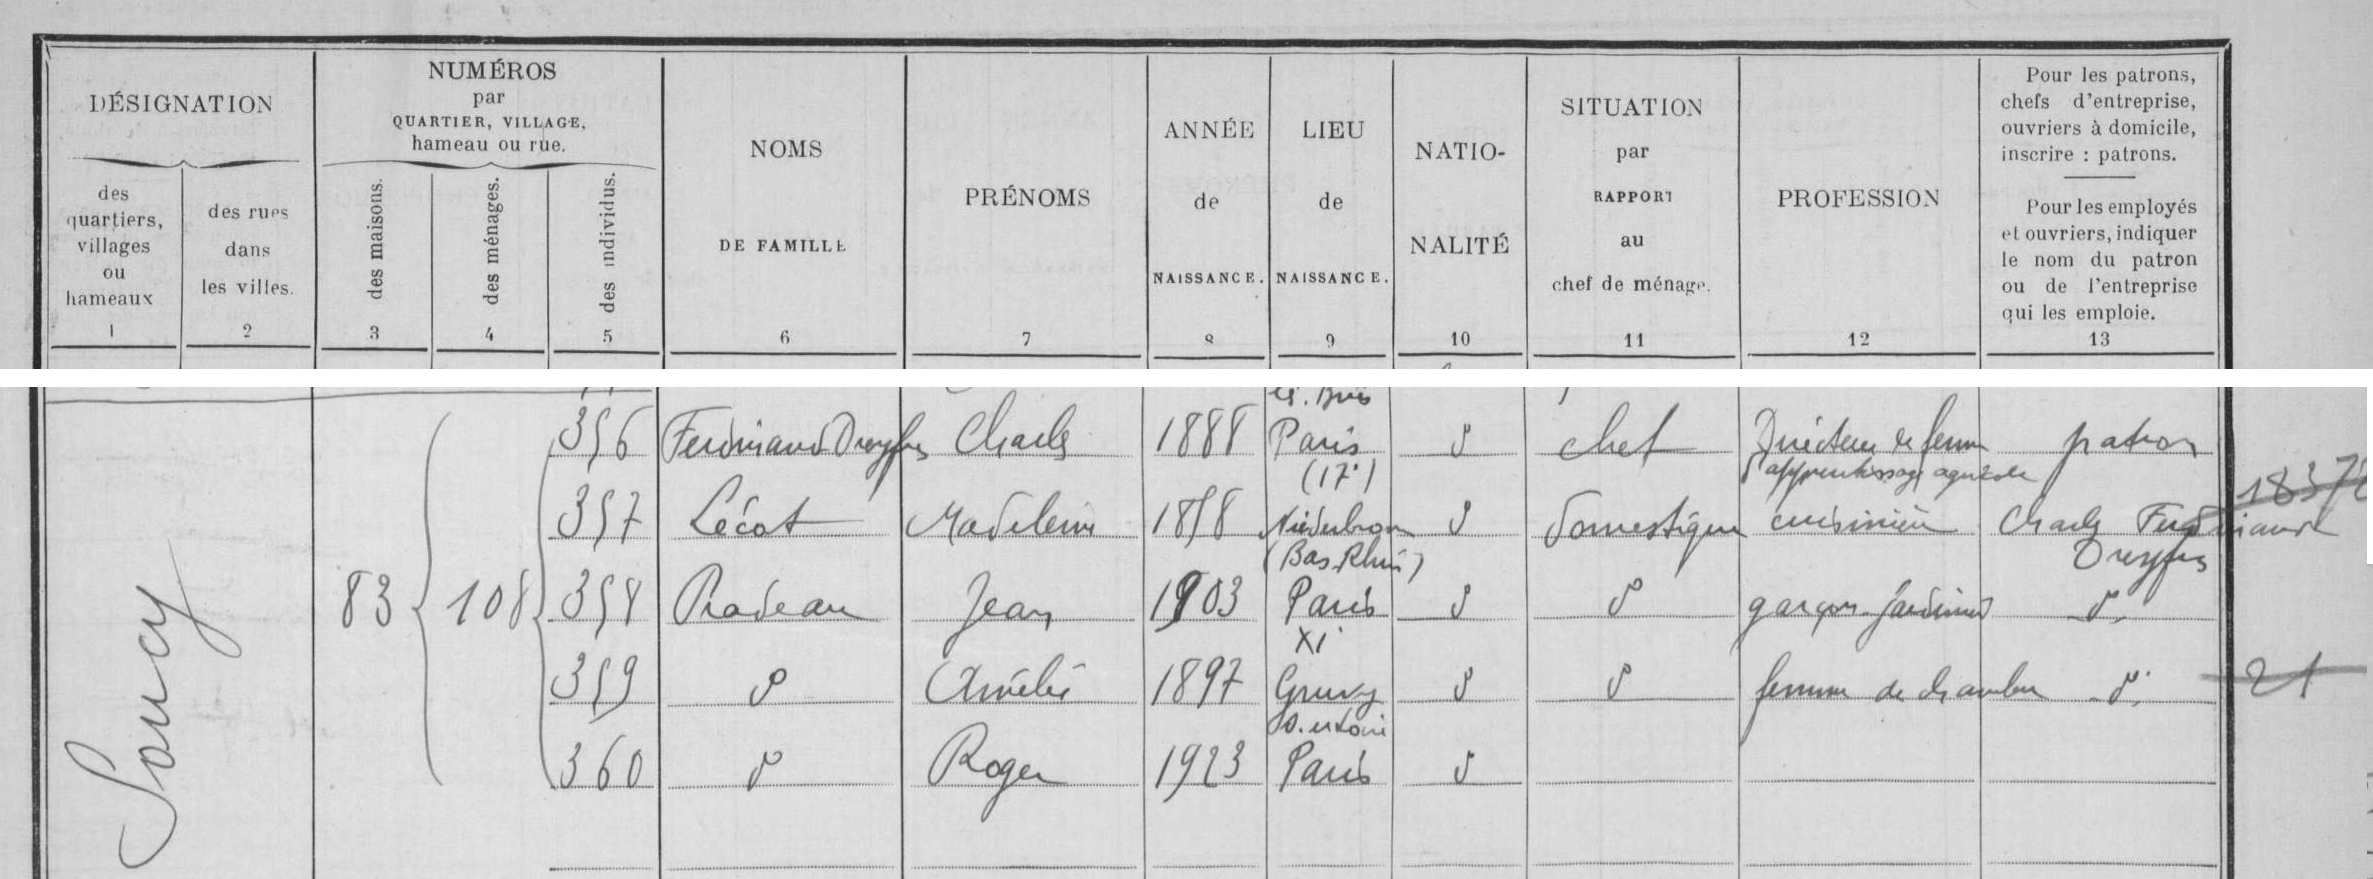 DÉSIGNATION
des quartiers, villages ou hameaux
1
des rues dans les villes.
2
NUMÉROS
par
QUARTIER, VILLAGE,
hameau ou rue.
des maisons.
3
des ménages.
4
des individus.
5
NOMS
DE FAMILLE
6
PRÉNOMS
7
ANNÉE
de
NAISSANCE.
8
LIEU
de
NAISSANCE.
9
NATIO-
NALITÉ
10
SITUATION
par
RAPPORT
au
chef de ménage.
11
PROFESSION
12
Pour les patrons,
chefs d'entreprise,
ouvriers à domicile,
inscrire : patrons.
Pour les employés
et ouvriers, indiquer
le nom du patron
ou de l'entreprise
qui les emploie.
13
Soucy
83 108
356 Ferdinand Dreyfus Charles 1888 Paris (17e) d chef Directeur de ferme d'apprentissage agricole patron
1837
357 Lécot Madeleine 1858 Niederbronn (Bas Rhin) d domestique cuisinière Charles Ferdinand Dreyfus
358 Pradeau Jean 1903 Paris XIe d d garçon jardinier d°
359 d Amélie 1897 d d femme de chambre d° 21
360 d Roger 1923 Paris d